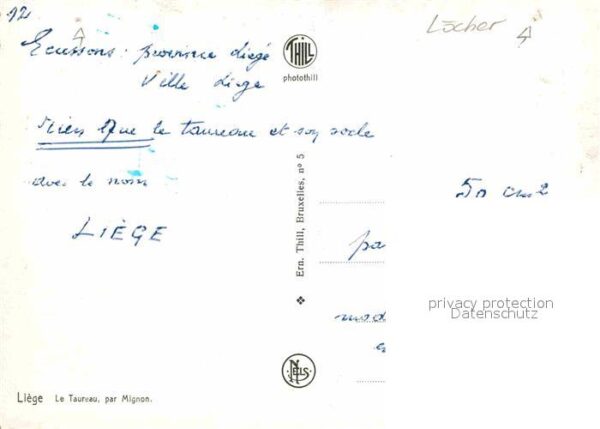 92
Locher
A
4
Ecussons : province Liège
Ville Liège
Rien que le taureau et son socle
avec le nom
LIÈGE
THILL
photothill
Ern. Thill, Bruxelles, nº 5
50 cm2
pa
mod
privacy protection
Datenschutz
NELS
Liège Le Taureau, par Mignon.